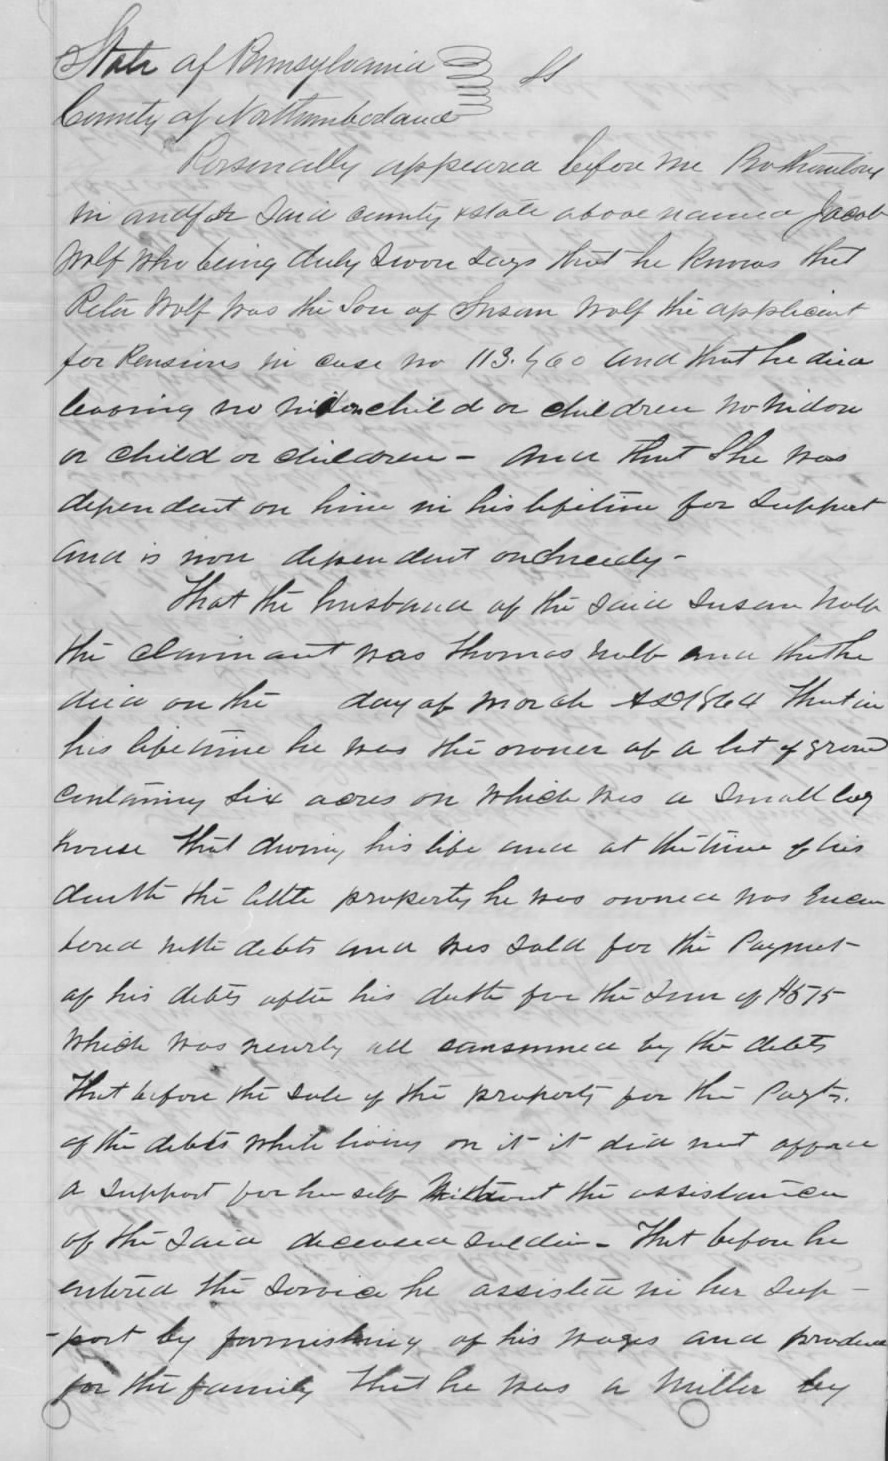 State of Pennsylvania } SS
County of Northumberland
Personally appeared before me Prothonotary
in and for Said county & state above named Jacob
Wolf who being duly Sworn Says that he Knows that
Peter Wolf was the Son of Susan Wolf the applicant
for Pensions in case no 113.460 and that he died
leaving no widow child or children no widow
or child or children - and that She was
dependent on him in his lifetime for Support
and is now dependent on
That the husband of the Said Susan Wolf
the claimant was Thomas Wolf and that he
died on the day of March AD 1864 That in
his lifetime he was the owner of a lot of ground
containing Six acres on which was a Small log
house That during his life and at the time of his
death the little property he was owned was Encum
bered with debts and was Sold for the Paymet
of his debts after his death for the Sum of $575
which was nearly all consumed by the debts
That before the Sale of the property for the Payts.
of the debts while living on it it did not afford
a Support for herself without the assistance
of the Said deceased Soldier - That before he
entered the Service he assisted in her Sup-
-port by furnishing of his wages and produce
for the family That he was a Miller by